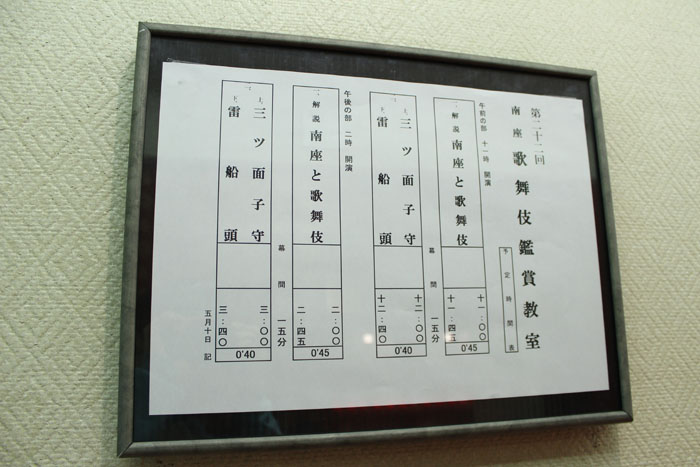 第二十二回
南座 歌舞伎鑑賞教室
予定時間表
午前の部 十一時 開演
一、解説 南座と歌舞伎
十一:〇〇
十一:四五
0'45
幕間 一五分
二、
上 三ツ面子守
下 雷船頭
十二:〇〇
十二:四〇
0'40
午後の部 二時 開演
一、解説 南座と歌舞伎
二:〇〇
二:四五
0'45
幕間 一五分
二、
上 三ツ面子守
下 雷船頭
三:〇〇
三:四〇
0'40
五月十日 記